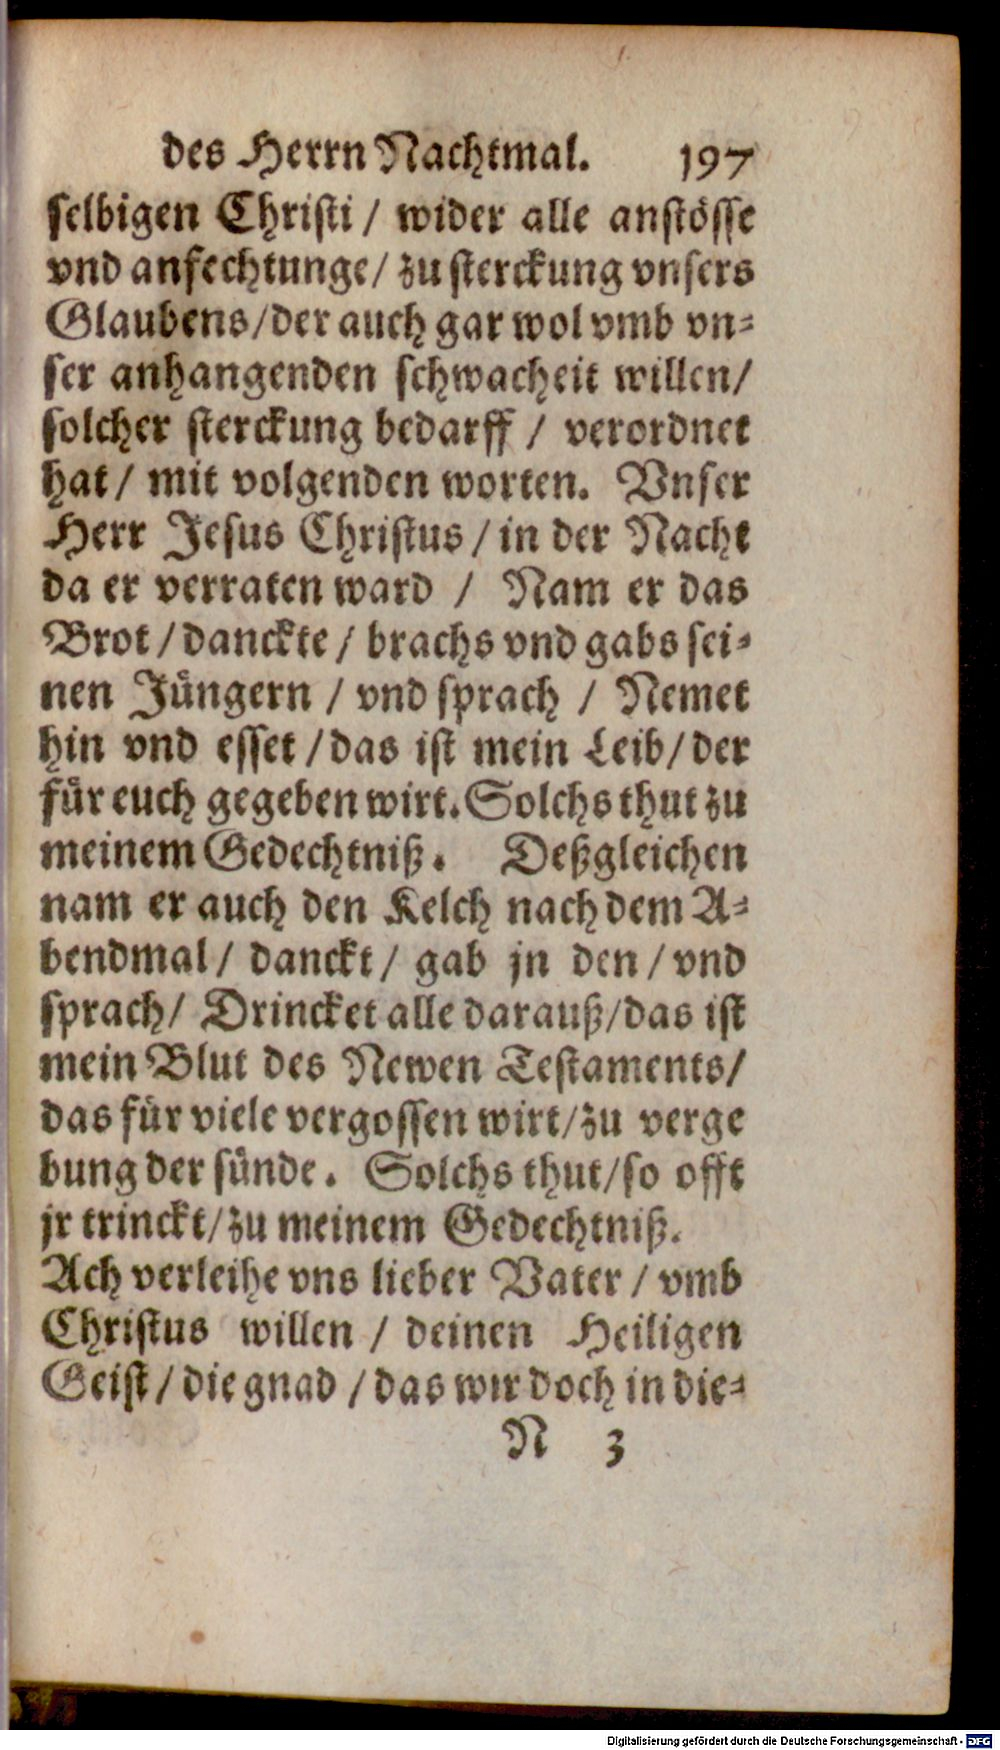 des Herrn Nachtmal. 197
selbigen Christi / wider alle anstösse
vnd anfechtunge / zu sterckung vnsers
Glaubens / der auch gar wol vmb vn-
ser anhangenden schwacheit willen /
solcher sterckung bedarff / verordnet
hat / mit volgenden worten. Vnser
Herr Jesus Christus / in der Nacht
da er verraten ward / Nam er das
Brot / danckte / brachs vnd gabs sei-
nen Jüngern / vnd sprach / Nemet
hin vnd esset / das ist mein Leib / der
für euch gegeben wirt. Solchs thut zu
meinem Gedechtniß. Deßgleichen
nam er auch den Kelch nach dem A-
bendmal / danckt / gab jn den / vnd
sprach / Drincket alle darauß / das ist
mein Blut des Newen Testaments /
das für viele vergossen wirt / zu verge
bung der sünde. Solchs thut / so offt
jr trinckt / zu meinem Gedechtniß.
Ach verleihe vns lieber Vater / vmb
Christus willen / deinen Heiligen
Geist / die gnad / das wir doch in die-
N 3
Digitalisierung gefördert durch die Deutsche Forschungsgemeinschaft - DFG